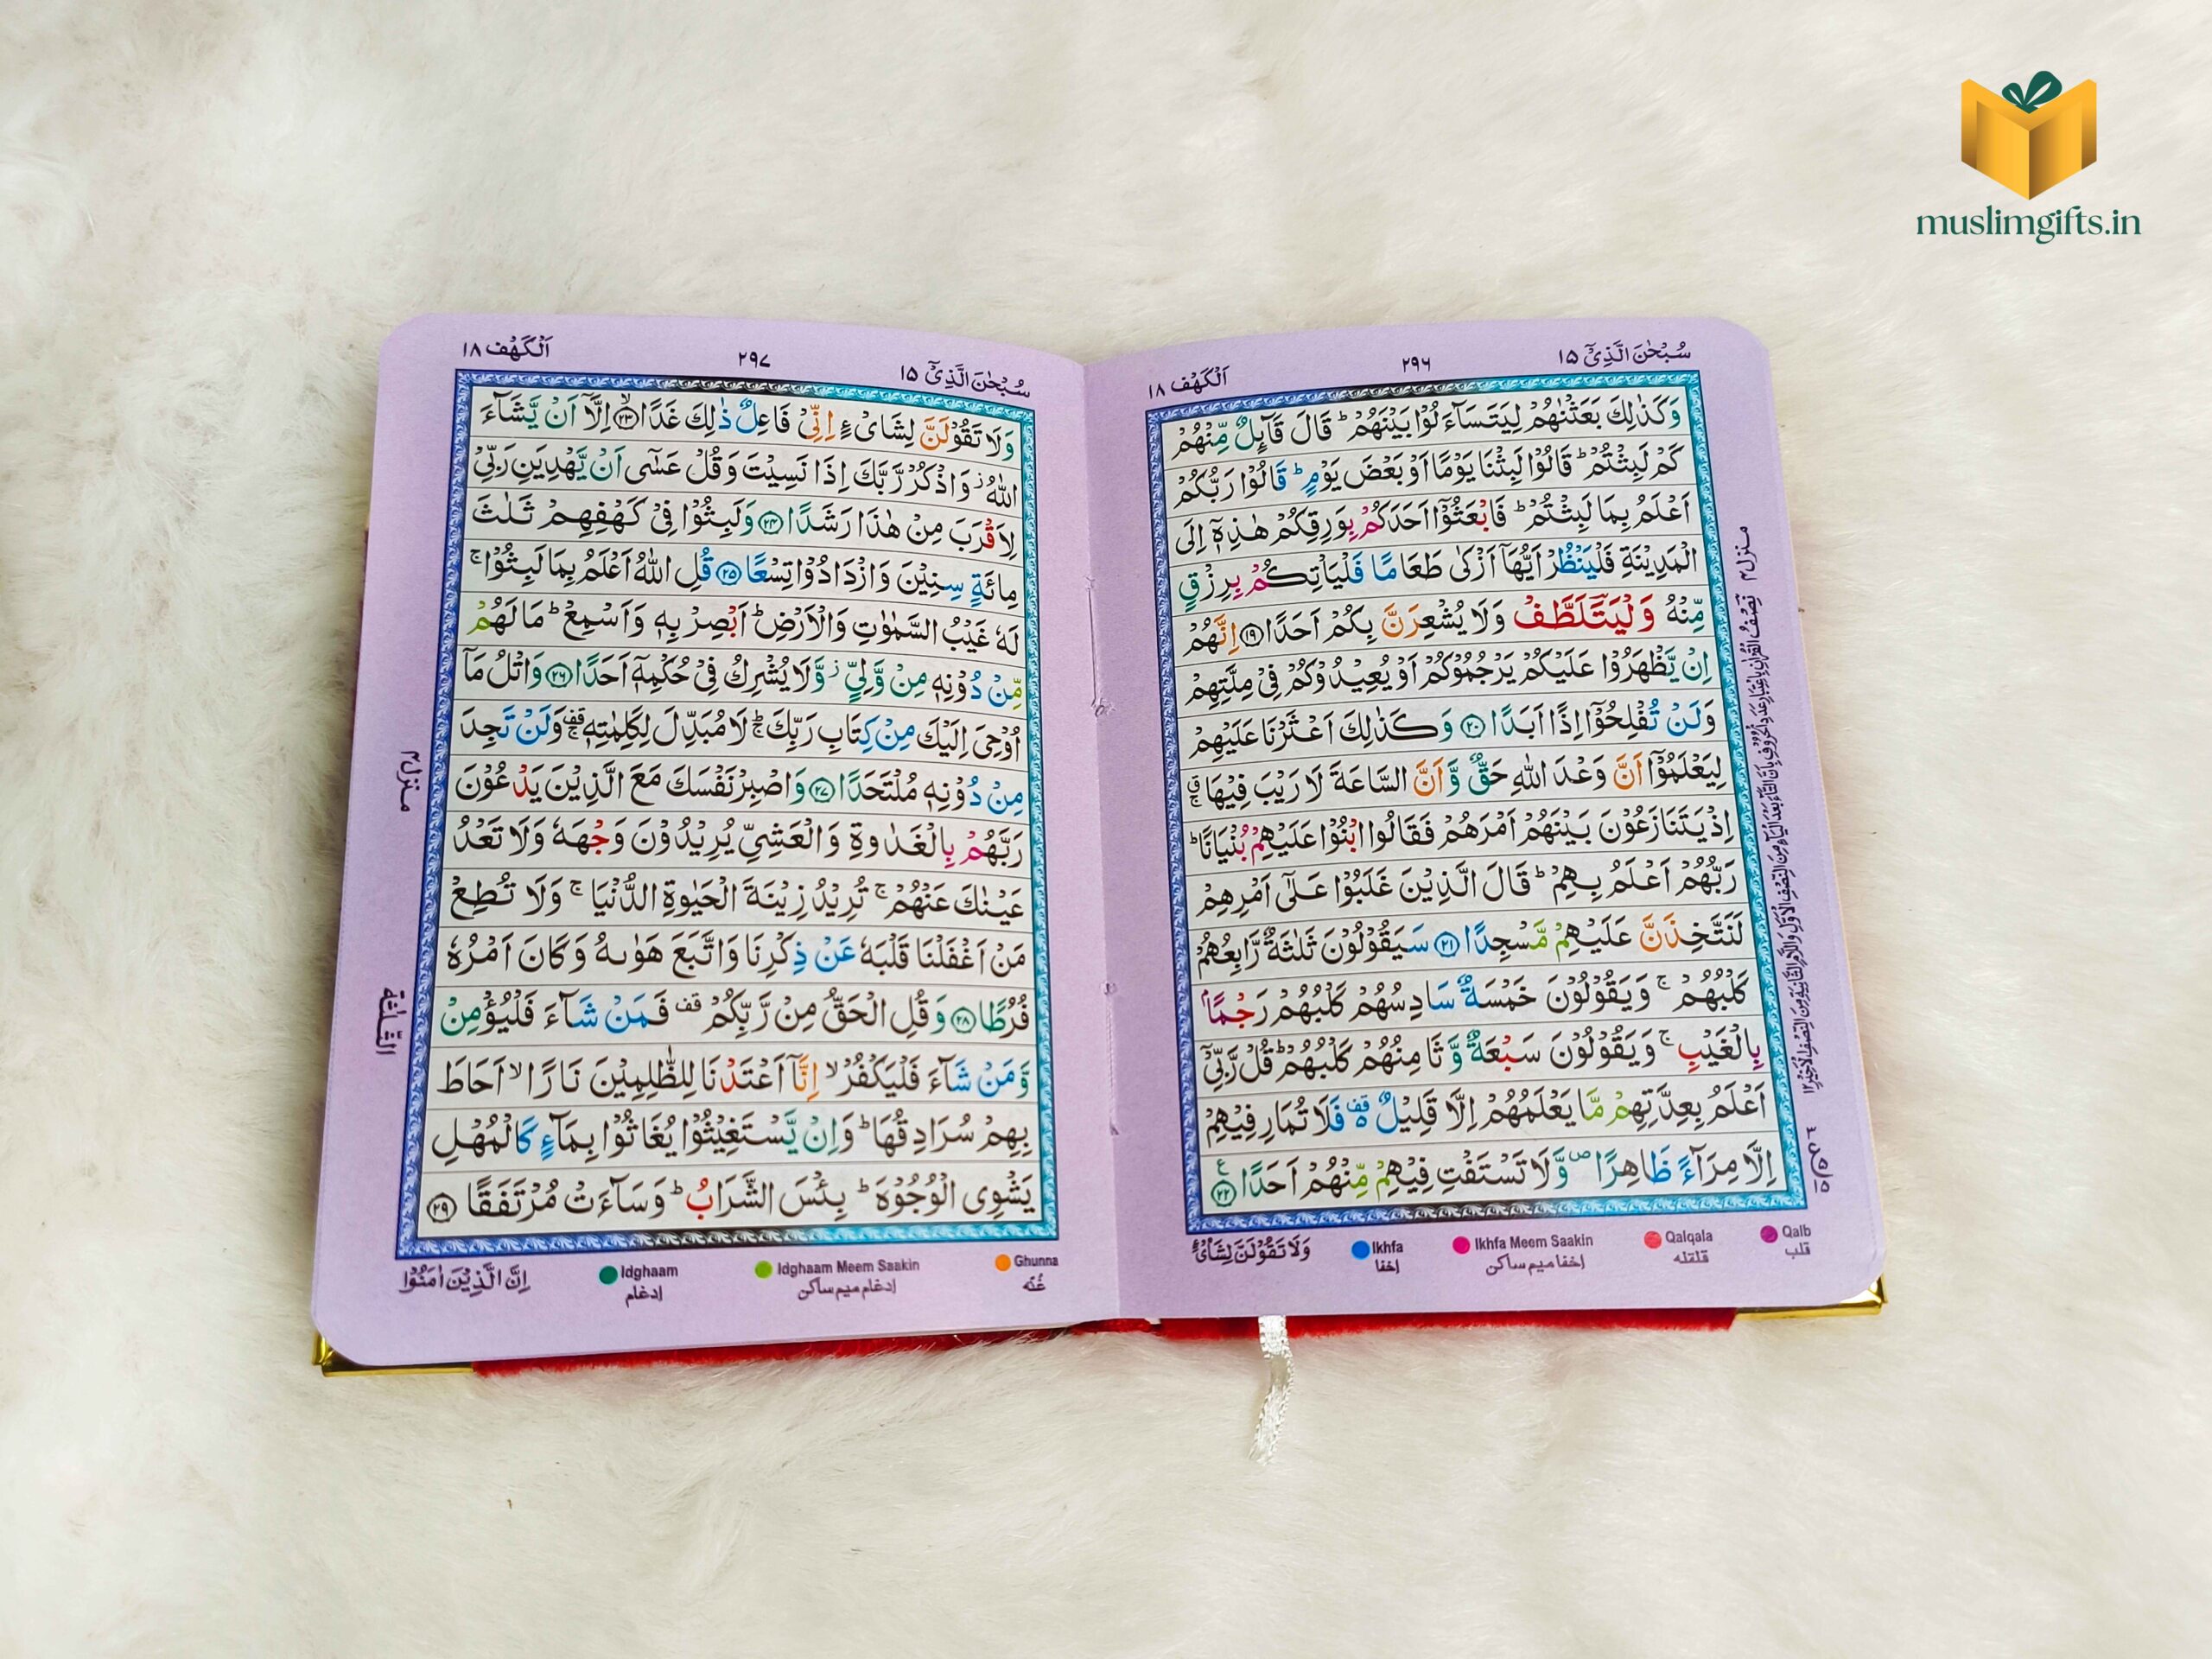 muslimgifts.in
سُبْحٰنَ الَّذِیْۤ ۱۵
۲۹۶
اَلْكَهْف ۱۸
وَكَذٰلِكَ بَعَثْنٰهُمْ لِیَتَسَآءَلُوْا بَیْنَهُمْ ؕ قَالَ قَآىِٕلٌ مِّنْهُمْ
كَمْ لَبِثْتُمْ ؕ قَالُوْا لَبِثْنَا یَوْمًا اَوْ بَعْضَ یَوْمٍ ؕ قَالُوْا رَبُّكُمْ
اَعْلَمُ بِمَا لَبِثْتُمْ ؕ فَابْعَثُوْۤا اَحَدَكُمْ بِوَرِقِكُمْ هٰذِهٖۤ اِلَی
الْمَدِیْنَةِ فَلْیَنْظُرْ اَیُّهَاۤ اَزْكٰی طَعَامًا فَلْیَاْتِكُمْ بِرِزْقٍ
مِّنْهُ وَلْیَتَلَطَّفْ وَلَا یُشْعِرَنَّ بِكُمْ اَحَدًا ۱۹ اِنَّهُمْ
اِنْ یَّظْهَرُوْا عَلَیْكُمْ یَرْجُمُوْكُمْ اَوْ یُعِیْدُوْكُمْ فِیْ مِلَّتِهِمْ
وَلَنْ تُفْلِحُوْۤا اِذًا اَبَدًا ۲۰ وَكَذٰلِكَ اَعْثَرْنَا عَلَیْهِمْ
لِیَعْلَمُوْۤا اَنَّ وَعْدَ اللّٰهِ حَقٌّ وَّاَنَّ السَّاعَةَ لَا رَیْبَ فِیْهَا ۚۗ
اِذْ یَتَنَازَعُوْنَ بَیْنَهُمْ اَمْرَهُمْ فَقَالُوا ابْنُوْا عَلَیْهِمْ بُنْیَانًا ؕ
رَبُّهُمْ اَعْلَمُ بِهِمْ ؕ قَالَ الَّذِیْنَ غَلَبُوْا عَلٰۤی اَمْرِهِمْ
لَنَتَّخِذَنَّ عَلَیْهِمْ مَّسْجِدًا ۲۱ سَیَقُوْلُوْنَ ثَلٰثَةٌ رَّابِعُهُمْ
كَلْبُهُمْ ۚ وَیَقُوْلُوْنَ خَمْسَةٌ سَادِسُهُمْ كَلْبُهُمْ رَجْمًۢا
بِالْغَیْبِ ۚ وَیَقُوْلُوْنَ سَبْعَةٌ وَّثَامِنُهُمْ كَلْبُهُمْ ؕ قُلْ رَّبِّیْۤ
اَعْلَمُ بِعِدَّتِهِمْ مَّا یَعْلَمُهُمْ اِلَّا قَلِیْلٌ ۫۬ فَلَا تُمَارِ فِیْهِمْ
اِلَّا مِرَآءً ظَاهِرًا ۪ وَّلَا تَسْتَفْتِ فِیْهِمْ مِّنْهُمْ اَحَدًا ۲۲ ع
منزل ۴
وَلَا تَقُوْلَنَّ لِشَایْءٍ
Ikhfa
إخفا
Ikhfa Meem Saakin
إخفا میم ساكن
Qalqala
قلقله
Qalb
قلب
سُبْحٰنَ الَّذِیْۤ ۱۵
۲۹۷
اَلْكَهْف ۱۸
وَلَا تَقُوْلَنَّ لِشَایْءٍ اِنِّیْ فَاعِلٌ ذٰلِكَ غَدًا ۲۳ اِلَّاۤ اَنْ یَّشَآءَ
اللّٰهُ ؗ وَاذْكُرْ رَّبَّكَ اِذَا نَسِیْتَ وَقُلْ عَسٰۤی اَنْ یَّهْدِیَنِ رَبِّیْ
لِاَقْرَبَ مِنْ هٰذَا رَشَدًا ۲۴ وَلَبِثُوْا فِیْ كَهْفِهِمْ ثَلٰثَ
مِائَةٍ سِنِیْنَ وَازْدَادُوْا تِسْعًا ۲۵ قُلِ اللّٰهُ اَعْلَمُ بِمَا لَبِثُوْا ۚ
لَهٗ غَیْبُ السَّمٰوٰتِ وَالْاَرْضِ ؕ اَبْصِرْ بِهٖ وَاَسْمِعْ ؕ مَا لَهُمْ
مِّنْ دُوْنِهٖ مِنْ وَّلِیٍّ ؗ وَّلَا یُشْرِكُ فِیْ حُكْمِهٖۤ اَحَدًا ۲۶ وَاتْلُ مَاۤ
اُوْحِیَ اِلَیْكَ مِنْ كِتَابِ رَبِّكَ ؕۚ لَا مُبَدِّلَ لِكَلِمٰتِهٖ ۫ۚ وَلَنْ تَجِدَ
مِنْ دُوْنِهٖ مُلْتَحَدًا ۲۷ وَاصْبِرْ نَفْسَكَ مَعَ الَّذِیْنَ یَدْعُوْنَ
رَبَّهُمْ بِالْغَدٰوةِ وَالْعَشِیِّ یُرِیْدُوْنَ وَجْهَهٗ وَلَا تَعْدُ
عَیْنٰكَ عَنْهُمْ ۚ تُرِیْدُ زِیْنَةَ الْحَیٰوةِ الدُّنْیَا ۚ وَلَا تُطِعْ
مَنْ اَغْفَلْنَا قَلْبَهٗ عَنْ ذِكْرِنَا وَاتَّبَعَ هَوٰىهُ وَكَانَ اَمْرُهٗ
فُرُطًا ۲۸ وَقُلِ الْحَقُّ مِنْ رَّبِّكُمْ ۫ فَمَنْ شَآءَ فَلْیُؤْمِنْ
وَّمَنْ شَآءَ فَلْیَكْفُرْ ۙ اِنَّاۤ اَعْتَدْنَا لِلظّٰلِمِیْنَ نَارًا ۙ اَحَاطَ
بِهِمْ سُرَادِقُهَا ؕ وَاِنْ یَّسْتَغِیْثُوْا یُغَاثُوْا بِمَآءٍ كَالْمُهْلِ
یَشْوِی الْوُجُوْهَ ؕ بِئْسَ الشَّرَابُ ؕ وَسَآءَتْ مُرْتَفَقًا ۲۹
منزل ۴
اِنَّ الَّذِیْنَ اٰمَنُوْا
Idghaam
إدغام
Idghaam Meem Saakin
إدغام میم ساكن
Ghunna
غُنّه